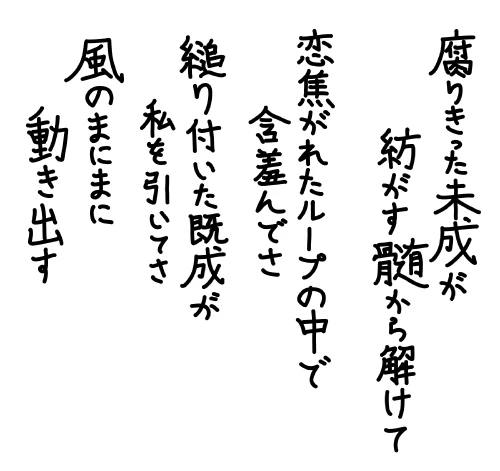 腐りきった未成が
紡がす髄から解けて
恋焦がれたループの中で
含羞んでさ
縋り付いた既成が
私を引いてさ
風のまにまに
動き出す